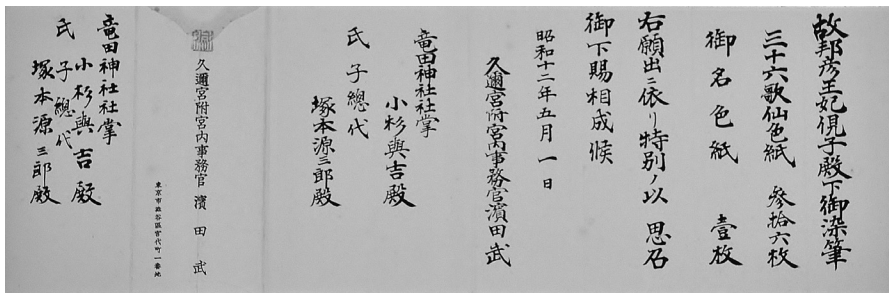 故邦彦王妃俔子殿下御染筆
三十六歌仙色紙　参拾六枚
御名色紙　壹枚
右願出ニ依リ特別ノ以　思召
御下賜相成候
昭和十二年五月一日
久邇宮附宮内事務官濱田武
竜田神社社掌
小杉與吉殿
氏子總代
塚本源三郎殿
久邇宮附宮内事務官　濱田　武
東京市澁谷區宮代町一番地
竜田神社社掌
小杉與吉殿
氏子總代
塚本源三郎殿